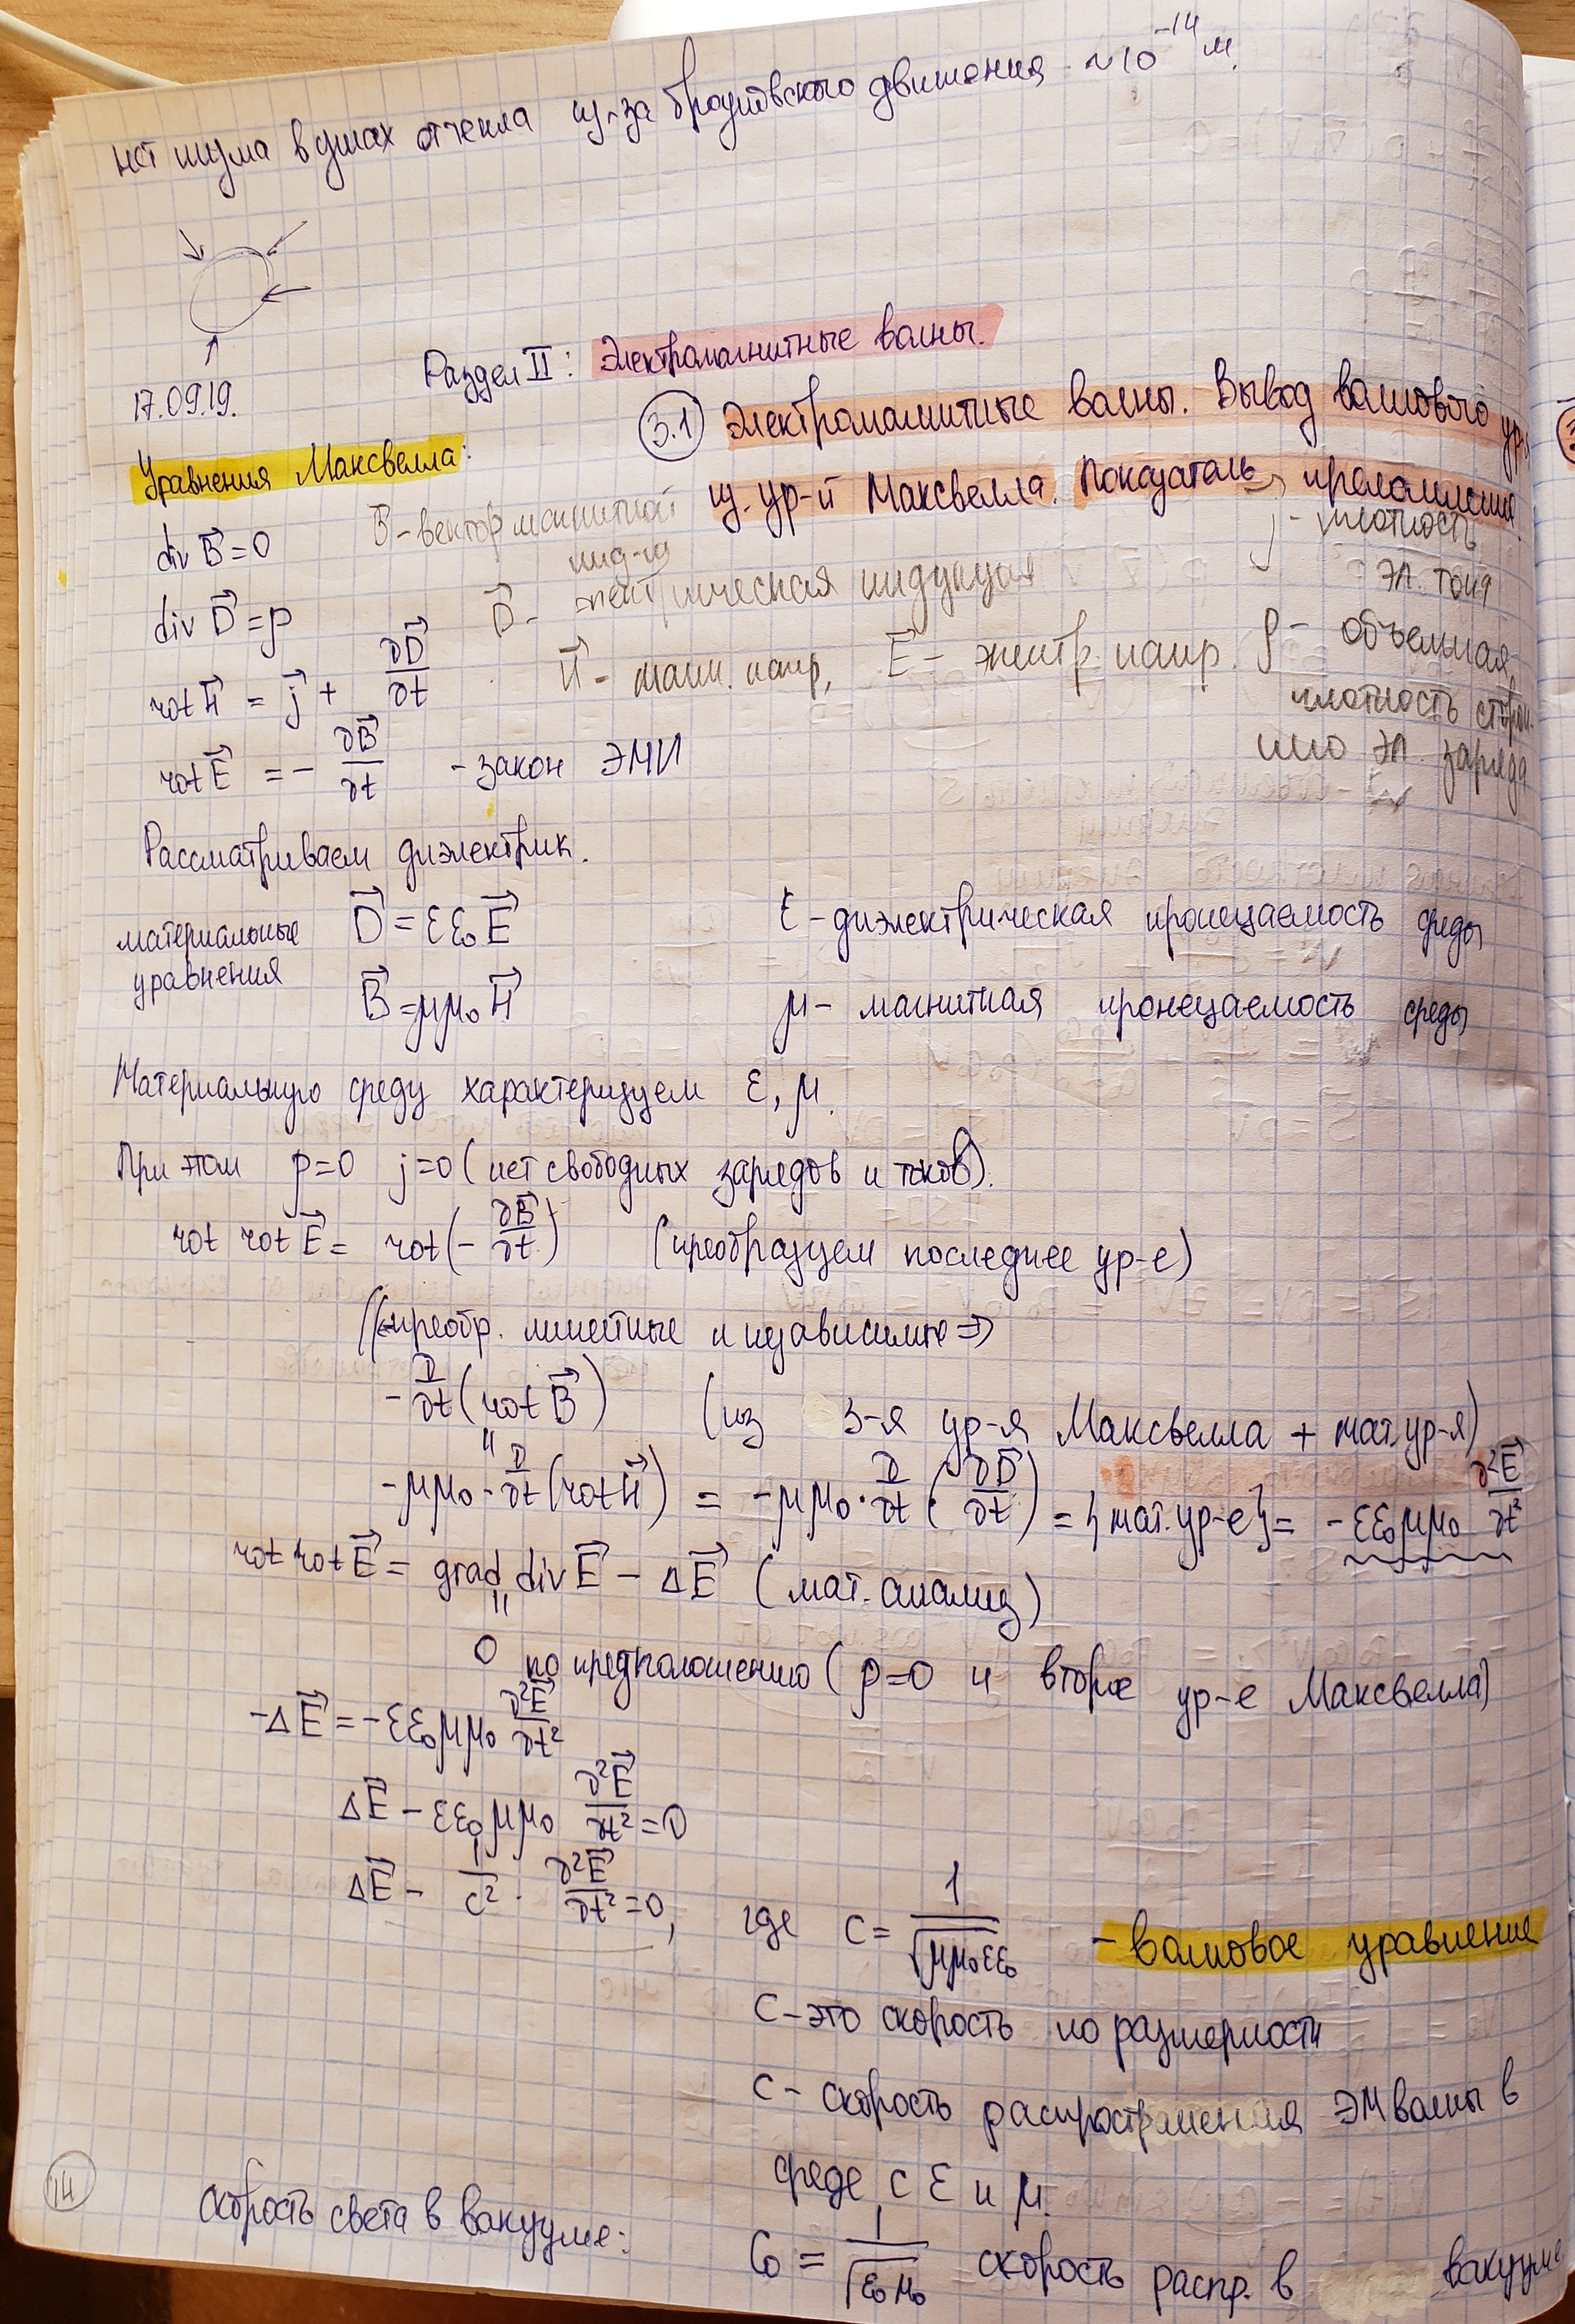 нет шума в ушах отчекла из-за броуновского движения ~10⁻¹⁴ м.
17.09.19.
Раздел II: Электромагнитные волны.
3.1 Электромагнитные волны. Вывод волнового ур-я
из ур-й Максвелла. Показатель преломления.
Уравнения Максвелла:
div B⃗ = 0
B⃗ - вектор магнитной
инд-и
j - плотность
эл. тока
div D⃗ = ρ
D⃗ - электрическая индукция
rot H⃗ = j⃗ + ∂D⃗/∂t
H⃗ - магн. напр, E⃗ - электр. напр.
ρ - объемная
плотность сторон-
него эл. заряда
rot E⃗ = - ∂B⃗/∂t - закон ЭМИ
Рассматриваем диэлектрик.
материальные
уравнения
D⃗ = εε₀E⃗
ε - диэлектрическая проницаемость среды
B⃗ = μμ₀H⃗
μ - магнитная проницаемость среды
Материальную среду характеризуем ε, μ.
При этом ρ=0 j=0 (нет свободных зарядов и токов).
rot rot E⃗ = rot(- ∂B⃗/∂t) (преобразуем последнее ур-е)
(преобр. линейные и независимые ⇒)
- ∂/∂t (rot B⃗) (из 3-я ур-я Максвелла + мат.ур-я)
"
-μμ₀ · ∂/∂t (rot H⃗) = -μμ₀ · ∂/∂t (∂D⃗/∂t) = {мат.ур-е} = -εε₀μμ₀ ∂²E⃗/∂t²
rot rot E⃗ = grad div E⃗ - ΔE⃗ (мат. анализ)
"
0 по предположению (ρ=0 и второе ур-е Максвелла)
-ΔE⃗ = -εε₀μμ₀ ∂²E⃗/∂t²
ΔE⃗ - εε₀μμ₀ ∂²E⃗/∂t² = 0
ΔE⃗ - 1/c² · ∂²E⃗/∂t² = 0, где c = 1/√(μμ₀εε₀) - волновое уравнение
c - это скорость по размерности
c - скорость распространения ЭМ волны в
среде с ε и μ.
Скорость света в вакууме:
c₀ = 1/√(ε₀μ₀) скорость распр. в вакууме
14